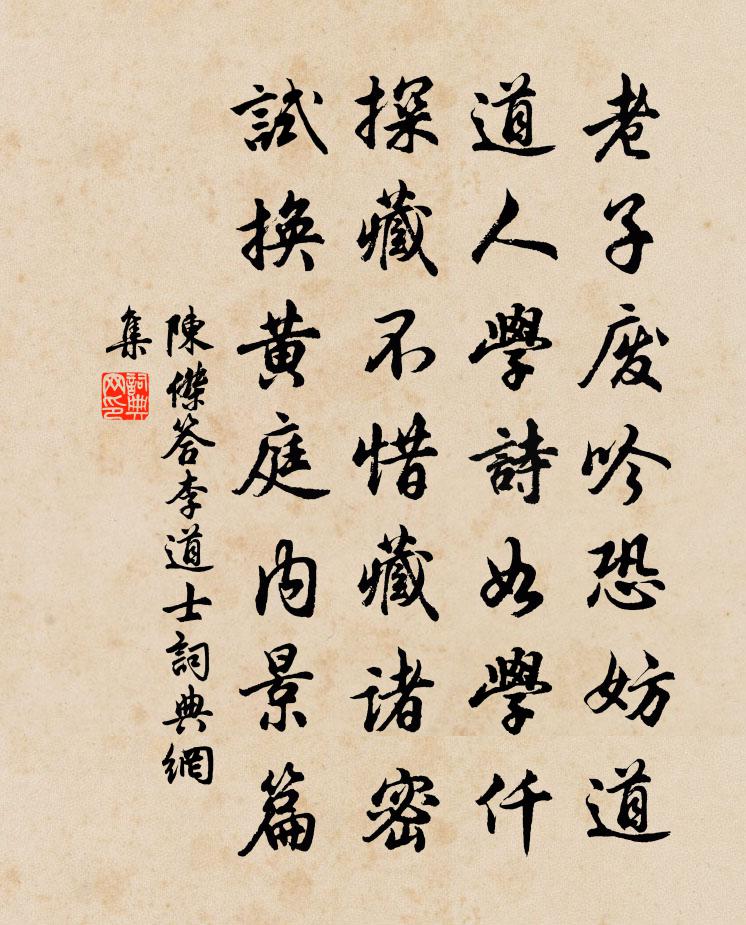 老子廢吟恐妨道
道人學詩如學仟
探藏不惜藏諸密
試換黃庭內景篇
陳傑答李道士詞典網
集
詞典网印